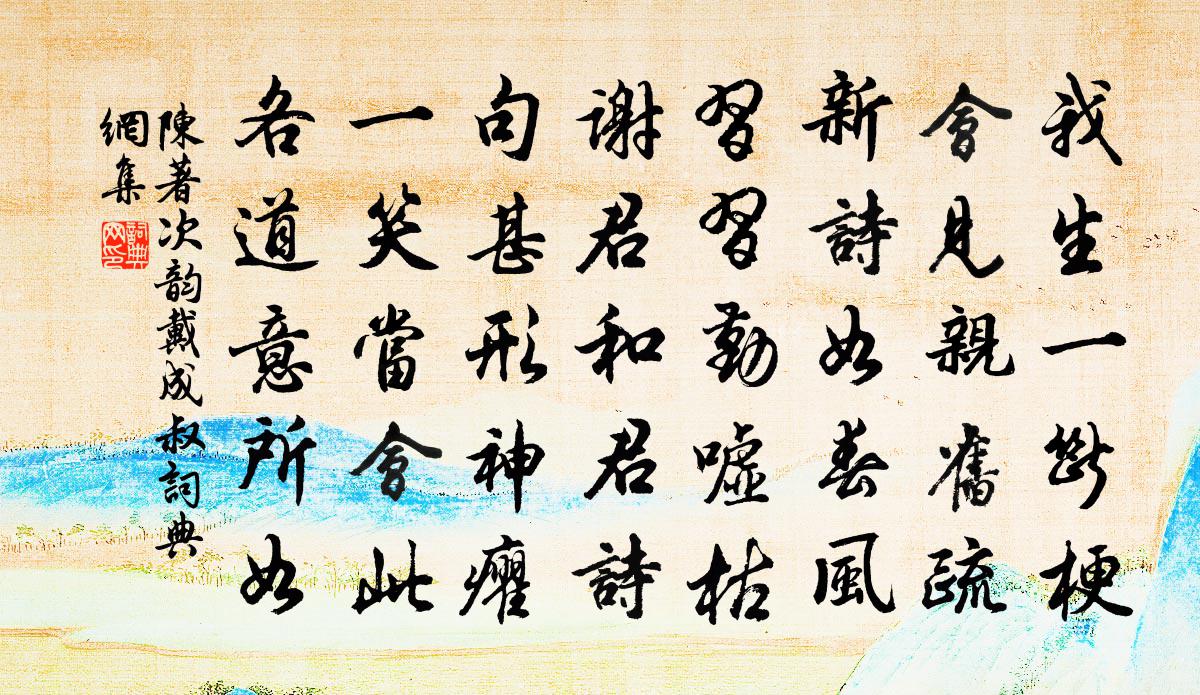 我生一斷梗
會見親舊疏
新詩如春風
習習勤噓枯
謝君和君詩
句甚形神癯
一笑當會此
各道意所如
陳著次韵戴成叔詞典
網集
詞典
网印